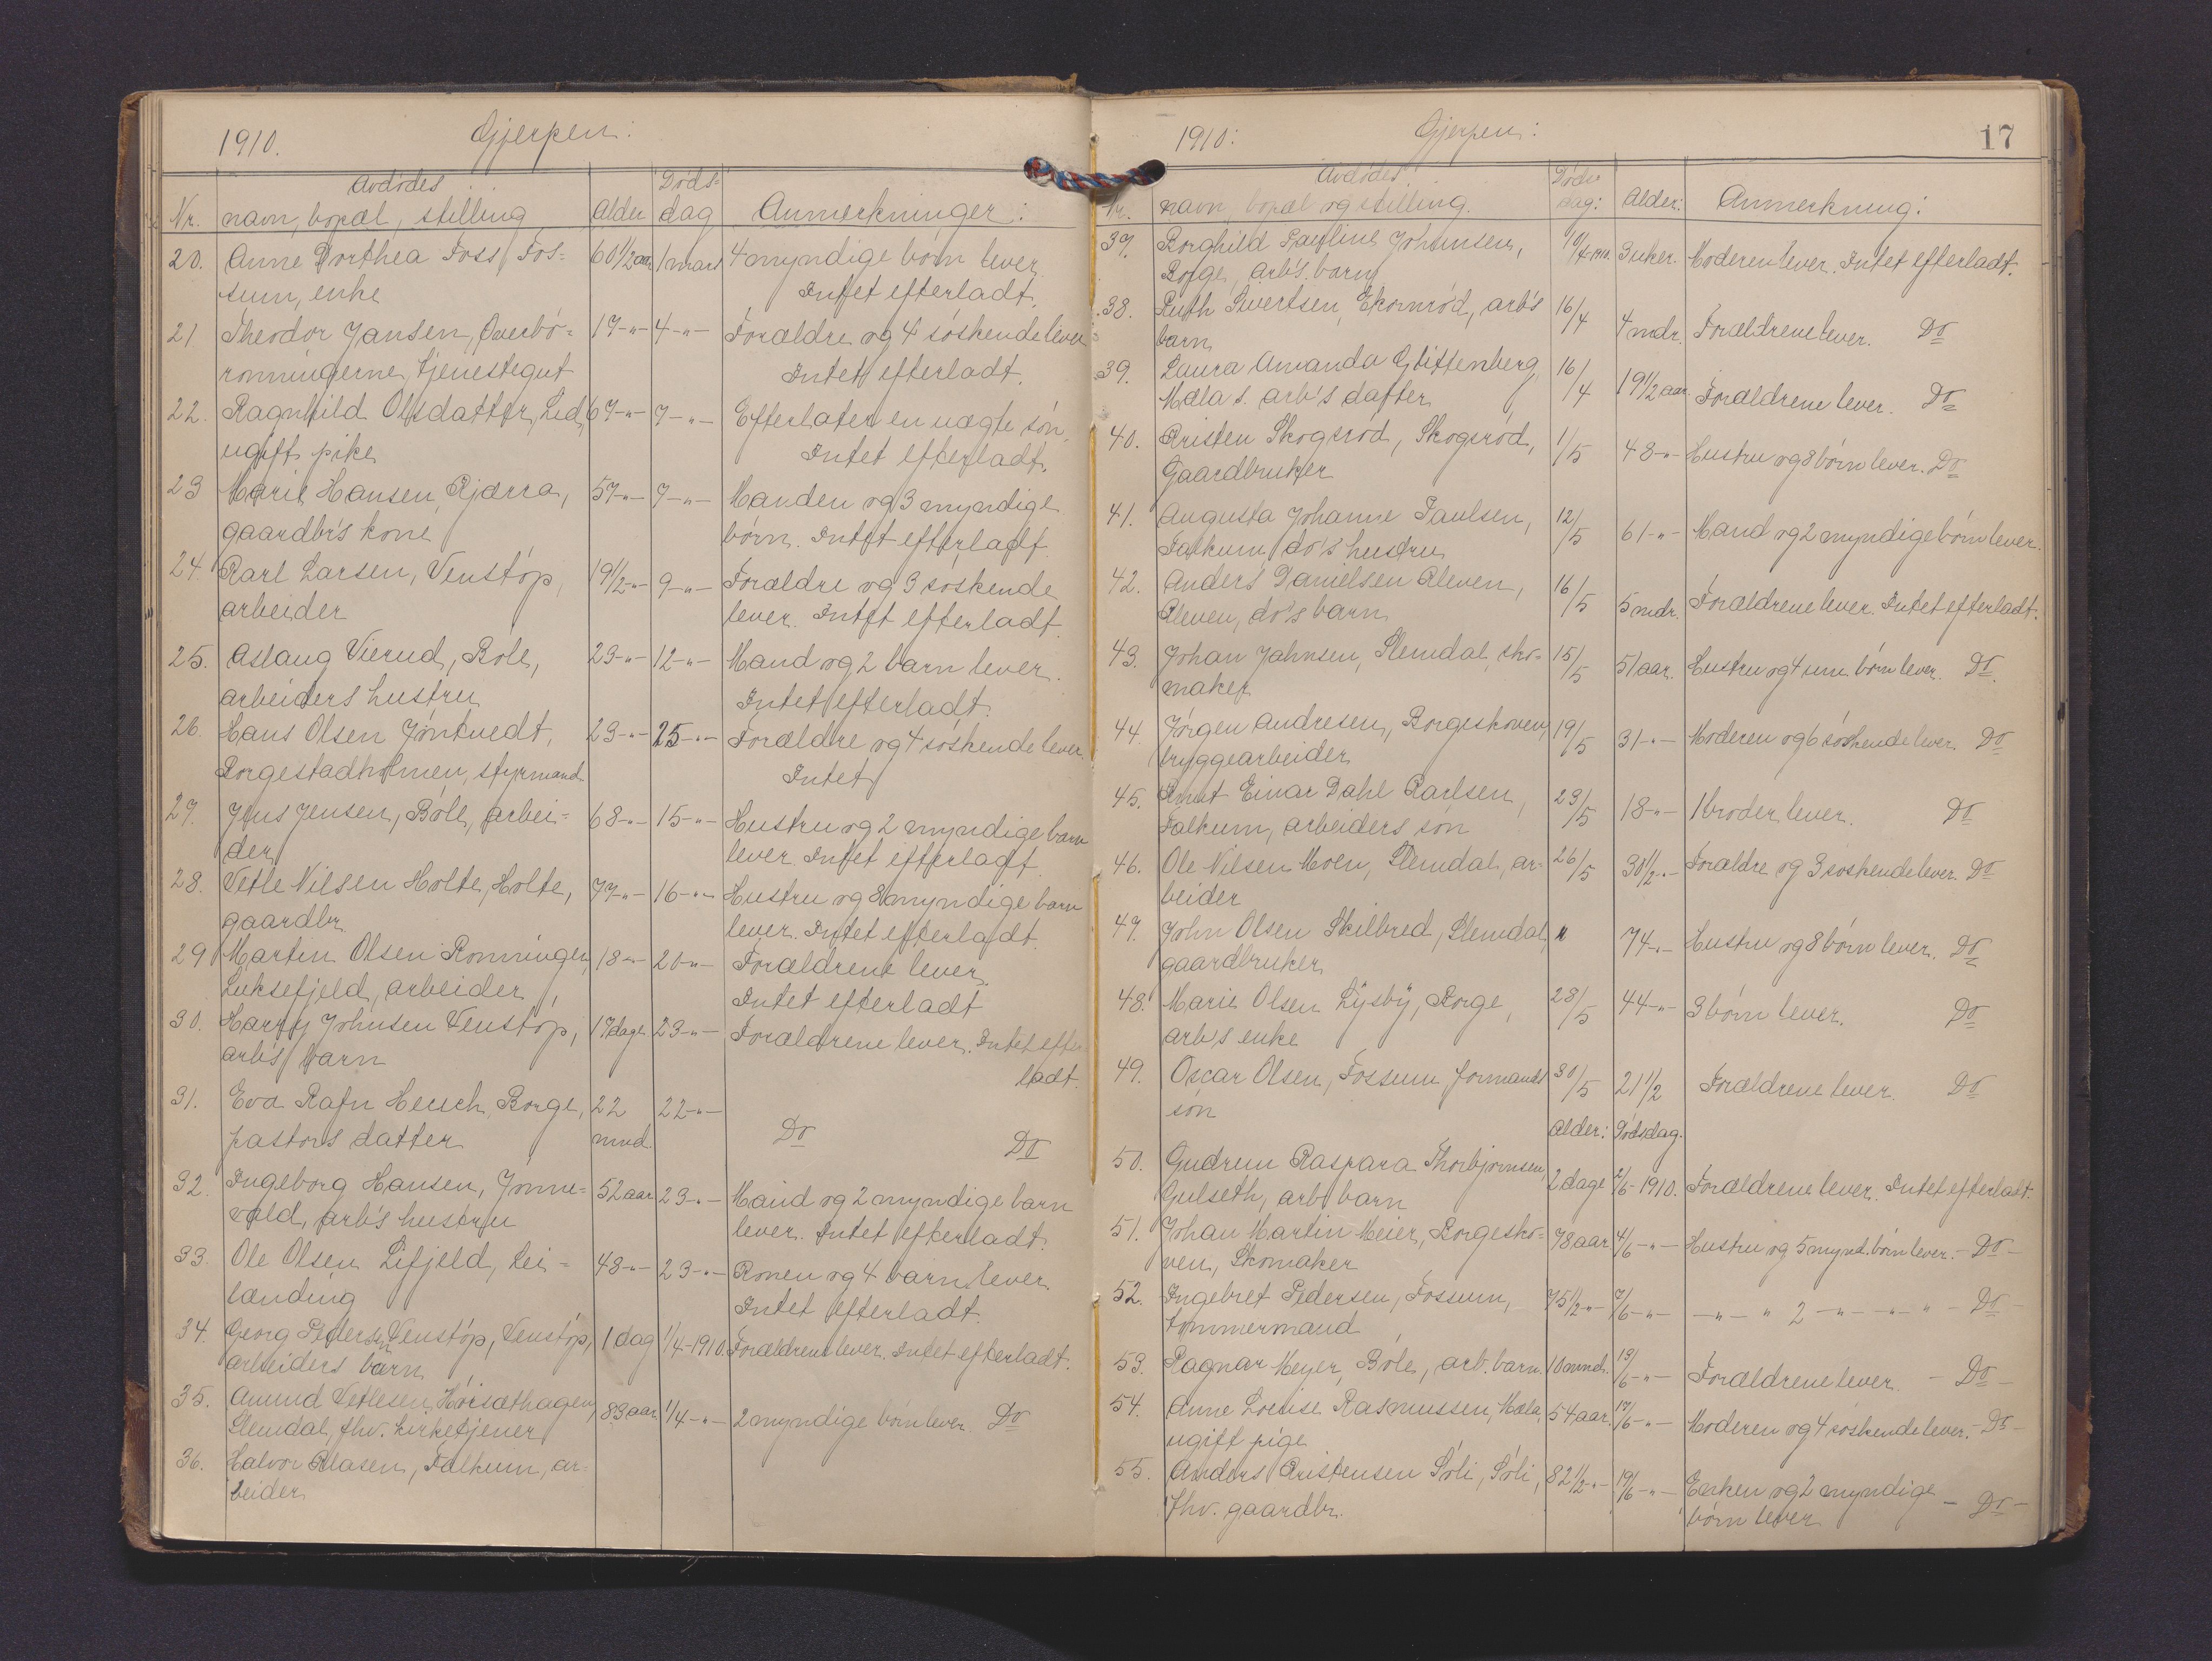 1910. Gjerpen:
Avdødes Døds-
Nr. navn, bopæl, stilling Alder dag Anmerkninger:
20. Anne Dorthea Foss, Fos- 60 1/2 aar 1 mars 4 myndige børn lever
sum, enke Intet efterladt.
21 Theodor Jansen, Øverbø- 17-"- 4-"- Forældre og 4 søskende lever
rønningerne, tjenestegut Intet efterladt.
22. Ragnhild Olsdatter, Lid, 67-"- 7-"- Efterlater en uægte søn.
ugift pike Intet efterladt.
23 Marie Hansen, Kjærra, 57-"- 7-"- Manden og 3 myndige
gaardbr's kone børn. Intet efterladt.
24. Karl Larsen, Venstøp, 19 1/2-"- 9-"- Forældre og 3 søskende
arbeider lever. Intet efterladt.
25. Aslaug Vierud, Bøle, 23-"- 12-"- Mand og 2 barn lever.
arbeiders hustru Intet efterladt.
26. Hans Olsen Jøntvedt, 23-"- 25-"- Forældre og 4 søskende lever.
Borgestadholmen, styrmand Intet
27. Jens Jensen, Bøle, arbei- 68-"- 15-"- Hustru og 2 myndige barn
der lever. Intet efterladt.
28. Vetle Nilsen Holte, Holte, 77-"- 16-"- Hustru og 8 myndige barn
gaardbr. lever. Intet efterladt.
29 Martin Olsen Rønningen, 18-"- 20-"- Forældrene lever.
Luksefjeld, arbeider Intet efterladt
30. Harry Johnsen Venstøp, 17 dage 23-"- Forældrene lever. Intet efter
arb's barn ladt.
31. Eva Rafn Heuch, Borge, 22 22-"-
pastors datter mnd. Do Do
32. Ingeborg Hansen, Jønne- 52 aar 23-"- Mand og 2 myndige barn
vald, arb's hustru lever. Intet efterladt.
33. Ole Olsen Lifjeld, Lei- 48-"- 23-"- Konen og 4 barn lever
lænding Intet efterladt.
34. Georg Pedersen Venstøp, Venstøp, 1 dag 1/4-1910. Forældrene lever. Intet efterladt.
arbeiders barn
35. Amund Vetlesen, Hørsæthagen, 83 aar 1/4-"- 2 myndige børn lever. Do
Slemdal, fhv. kirketjener
36. Halvor Klasen, Falkum, ar-
beider
1910: Gjerpen: 17
Avdødes Døds
Nr. navn, bopæl og stilling. dag: Alder: Anmerkning:
37. Borghild Pauline Johnsen, 10/4-1910. 3 uker. Moderen lever. Intet efterladt.
Borge, arb's. barn
38. Ruth Sivertsen, Ekornrød, arb's 16/4 4 mdr. Forældrene lever. Do
barn
39. Laura Amanda Glittenberg, 16/4 19 1/2 aar Forældrene lever. Do
Mæla s. arb's datter
40. Kristen Skogsrød, Skogsrød, 1/5 48-"- Hustru og 8 børn lever. Do
Gaardbruker
41. Augusta Johanne Paulsen, 12/5 61-"- Mand og 2 myndige børn lever.
Falkum, do's hustru
42. Anders Danielsen Kleven, 16/5 5 mdr. Forældrene lever. Intet efterladt.
Kleven, do's barn
43. Johan Jahnsen, Slemdal, sko- 15/5 51 aar. Hustru og 4 um. børn lever. Do.
maker
44. Jørgen Andresen, Borgeskoven, 19/5 31-"- Moderen og 6 søskende lever. Do
bryggearbeider
45. Knut Einar Dahl Karlsen, 23/5 18-"- 1 broder lever. Do
Falkum, arbeiders søn
46. Ole Nilsen Moen, Slemdal, ar- 26/5 30 1/2-"- Forældre og 3 søskende lever. Do
beider
47. John Olsen Skilbred, Slemdal, " 74-"- Hustru og 8 børn lever. Do
gaardbruker
48. Marie Olsen Lysby, Borge, 28/5 44-"- 3 børn lever. Do
arb's enke
49. Oscar Olsen, Fossum, formands 30/5 21 1/2 Forældrene lever. Do
søn
Alder: Dødsdag.
50. Gudrun Kaspara Thorbjørnsen, 2 dage 2/6-1910. Forældrene lever. Intet efterladt.
Gulseth, arb. barn
51. Johan Martin Meier, Borgesko- 78 aar 4/6-"- Hustru og 5 mynd. børn lever. - Do -
ven, Skomaker
52. Ingebret Pedersen, Fossum, 75 1/2-"- 7/6-"- -"- " 2 -"- -"- " - Do -
tømmermand
53. Ragnar Meyer, Bøle, arb. barn. 10 mnd. 13/6-"- Forældrene lever. - Do -
54. Anne Lovise Rasmussen, Mæla, 54 aar. 17/6-"- Moderen og 4 søskende lever. - Do -
ugift pige
55. Anders Kristensen Søli, Søli, 82 1/2-"- 19/6-"- Enken og 2 myndige - Do -
fhv. gaardbr. børn lever